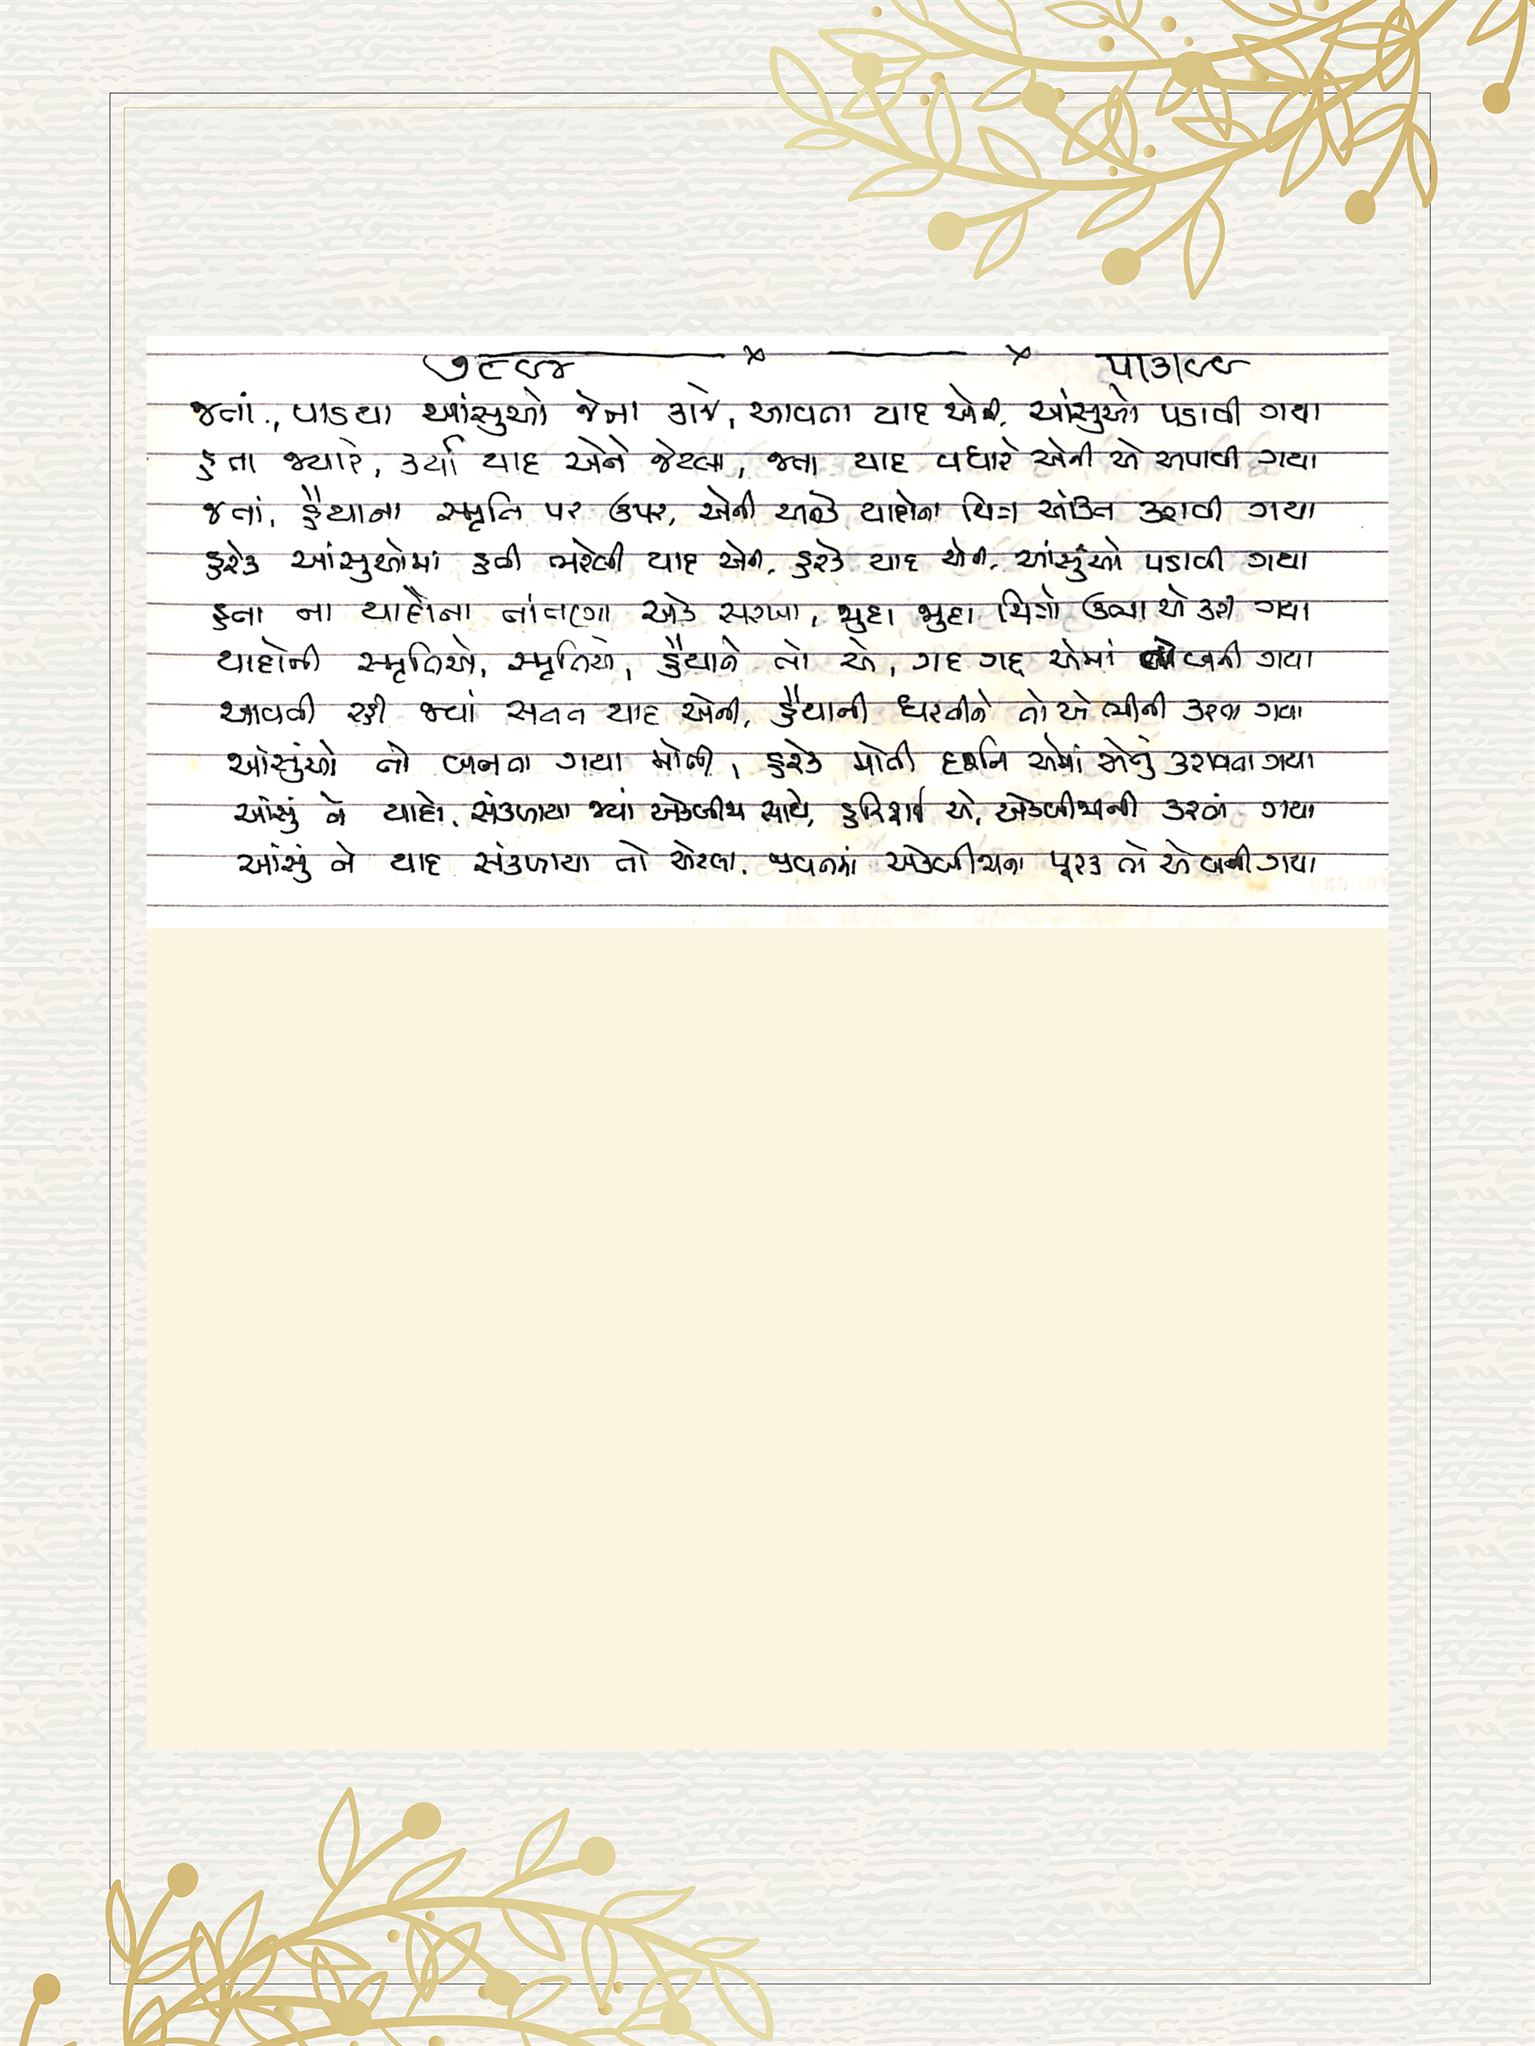 જતાં, પાડયા આંસુઓ જેના કાજે, આવતા યાદ એની, આંસુઓ પડાવી ગયા
હતા જ્યારે, કર્યા યાદ એને જેટલા, જતા યાદ વધારે એની એ અપાવી ગયા
જતાં, હૈયાના સ્મૃતિ પર ઉપર, એની યાદોના ચિત્ર અંકિત કરાવી ગયા
હરેક આંસુઓમાં હતી ભરેલી યાદ એની, હરેક યાદ એની, આંસુંઓ પડાવી ગયા
હતા ના યાદોના તાંતણા એક સરખા, જુદા જુદા ચિત્રો ઉભા એ કરી ગયા
યાદોની સ્મૃતિએ, સ્મૃતિએ, હૈયાને તો એ, ગદ ગદ્ એમાં બની ગયા
આવતી રહી જ્યાં સતત યાદ એની, હૈયાની ધરતીને તો એ ભીની કરતા ગયા
આંસુંઓ તો બનતા ગયા મોતી, હરેક મોતી દર્શન એમાં એનું કરાવતા ગયા
આંસું ને યાદો, સંકળાયા જ્યાં એકબીજા સાથે, એ, એકબીજાની કરતાં ગયા
આંસું ને યાદ સંકળાયા તો એટલા, જીવનમાં એકબીજાના પૂરક તો એ બની ગયા